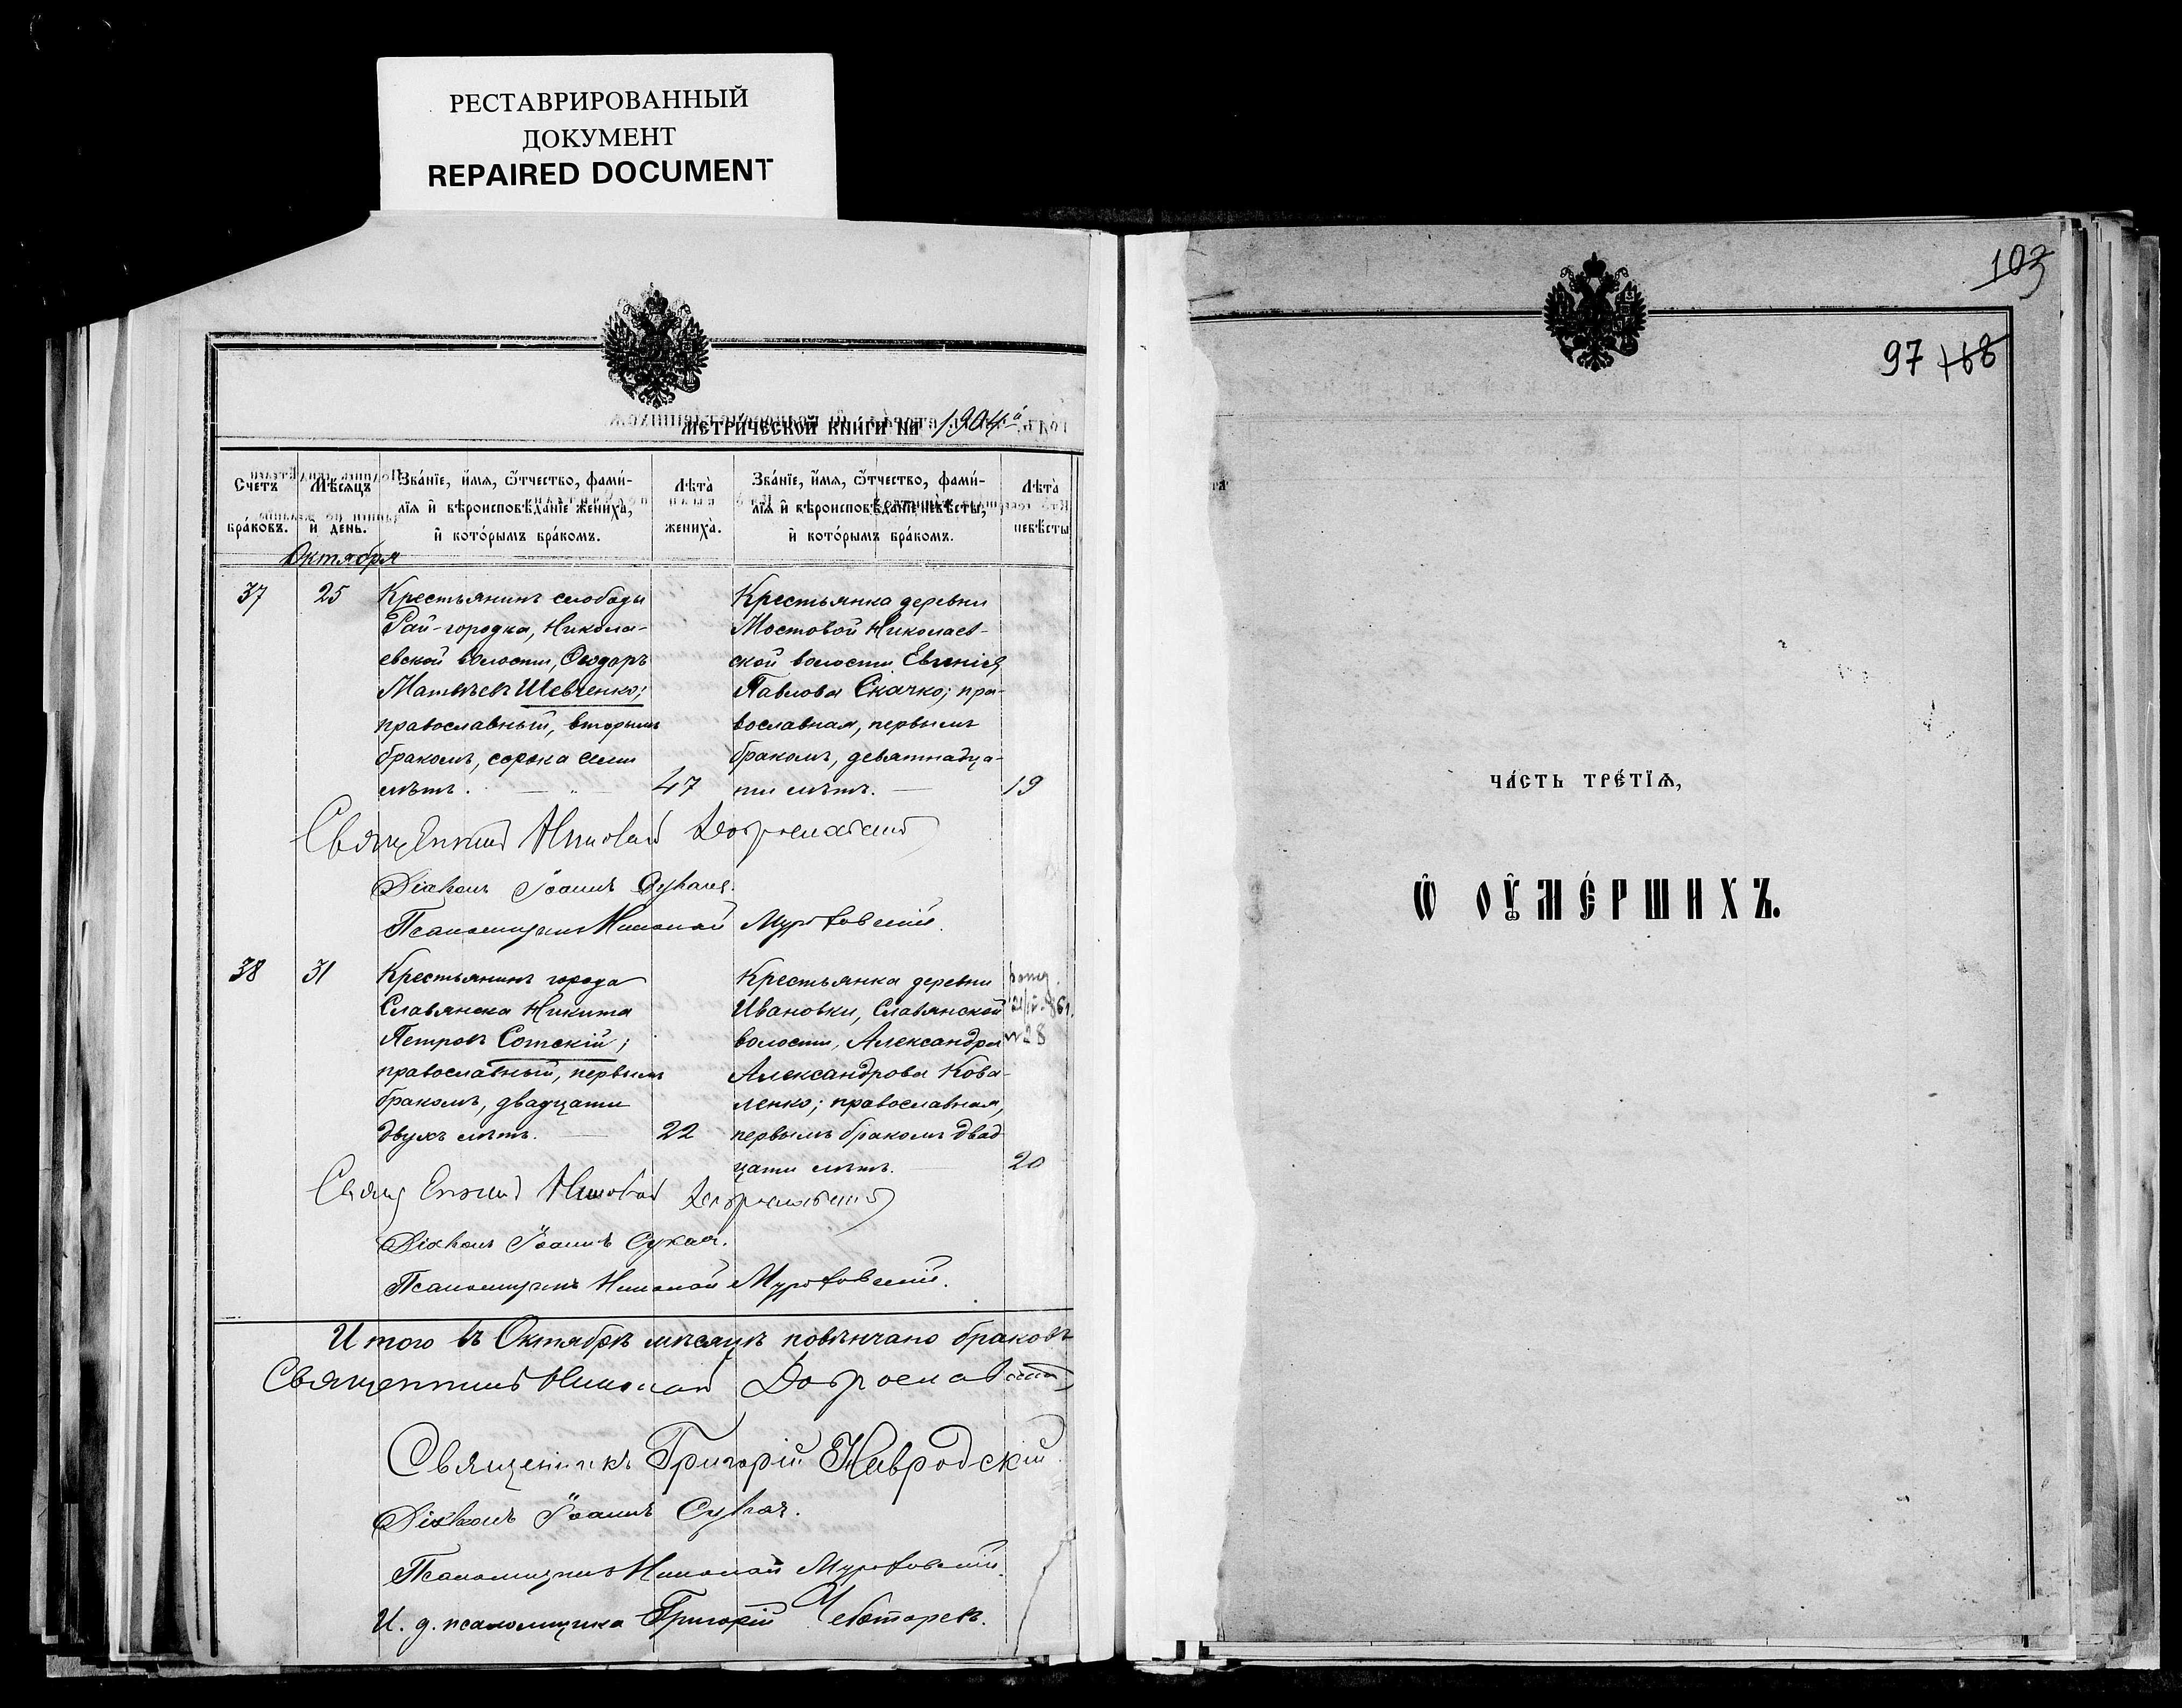 РЕСТАВРИРОВАННЫЙ
ДОКУМЕНТ
REPAIRED DOCUMENT
МЕТРИЧЕСКОЙ КНИГИ НА 1904й
Счетъ браковъ.
Мѣсяцъ и день.
Зва́нїе, и҆́мѧ, ѻ҆́тчество, фами́-
лїѧ и҆ вѣроисповѣ́данїе жениха̀,
и҆ кото́рымъ бра́комъ.
Лѣта̀ жениха̀.
Зва́нїе, и҆́мѧ, ѻ҆́тчество, фами́-
лїѧ и҆ вѣроисповѣ́данїе невѣ́сты,
и҆ кото́рымъ бра́комъ.
Лѣта̀ невѣ́сты
Октября
37 25
Крестьянинъ слободы
Рай-городка, Никола-
евской волости, Ѳеодоръ
Матвѣевъ Шевченко;
православный, вторымъ
бракомъ, сорока семи
лѣтъ. 47
Крестьянка деревни
Мостовой Николаев-
ской волости Евгенія
Павлова Скачко; пра-
вославная, первымъ
бракомъ, девятнадца-
ти лѣтъ. 19
Священникъ Николай Доброславскій
Діаконъ Іоаннъ Сукачъ.
Псаломщикъ Николай
38 31
Крестьянинъ города
Славянска Никита
Петровъ Сотскій;
православный, первымъ
бракомъ, двадцати
двухъ лѣтъ. 22
Крестьянка деревни
Ивановки, Славянской
волости, Александра
Александрова Кова-
ленко; православная,
первымъ бракомъ двад-
цати лѣтъ. 20
№28
Священникъ Николай Доброславскій
Діаконъ Іоаннъ Сукачъ.
Псаломщикъ Николай
Итого въ Октябрѣ мѣсяцѣ повѣнчано браковъ
Священникъ Николай Доброславскій
Священникъ Григорій Навродскій
Діаконъ Іоаннъ Сукачъ.
Псаломщикъ Николай
И. д. псаломщика Григорій Чеботаревъ.
103
97 168
ЧА́СТЬ ТРЕ́ТЇѦ,
Ѡ҆ ОУ҆МЕ́РШИХЪ.